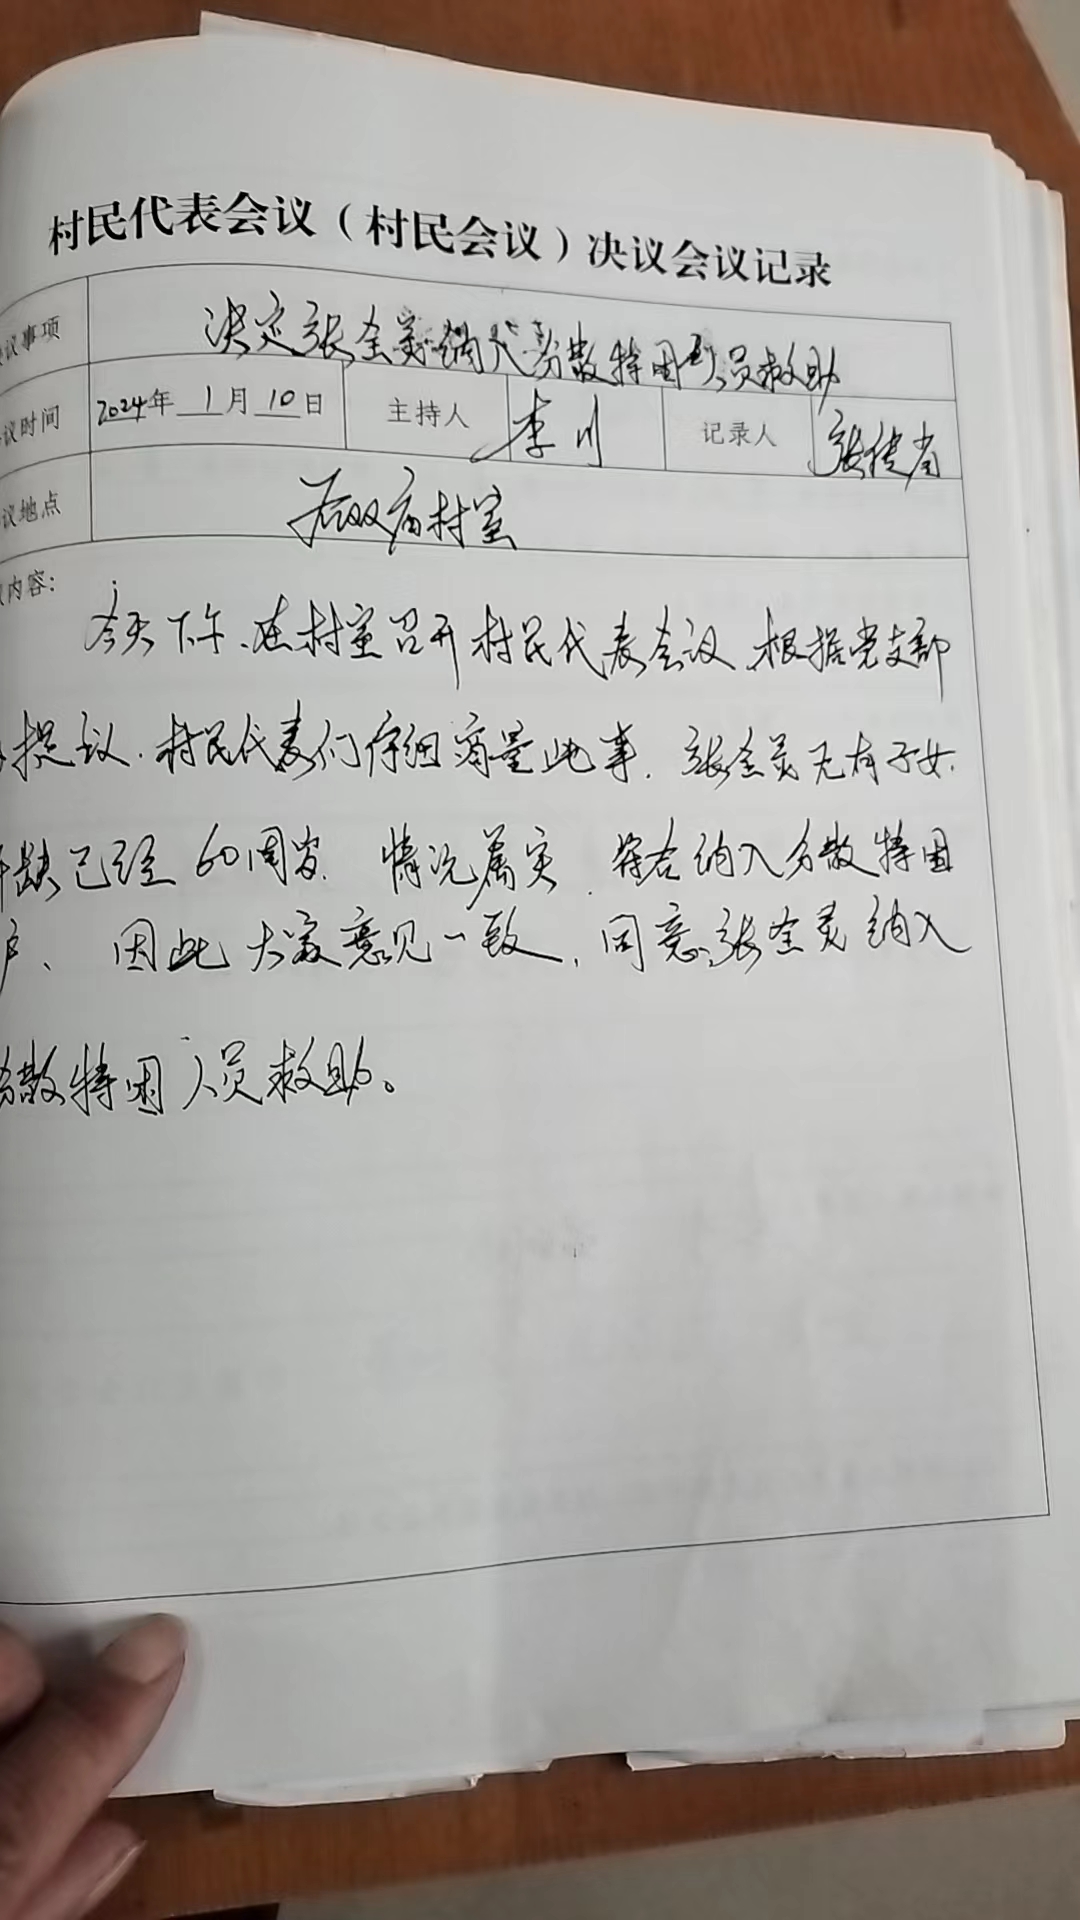 村民代表会议（村民会议）决议会议记录
议事项 决定张全灵纳入分散特困人员救助
议时间 2024年 1月 10日 主持人 李川 记录人 张
议地点 后双庙村室
内容：
今天下午、在村室召开村民代表会议、根据党支部
提议、村民代表们仔细商量此事、张全灵无有子女、
缺已经60周岁、情况属实、符合纳入分散特困
户、因此大家意见一致、同意张全灵纳入
分散特困人员救助。